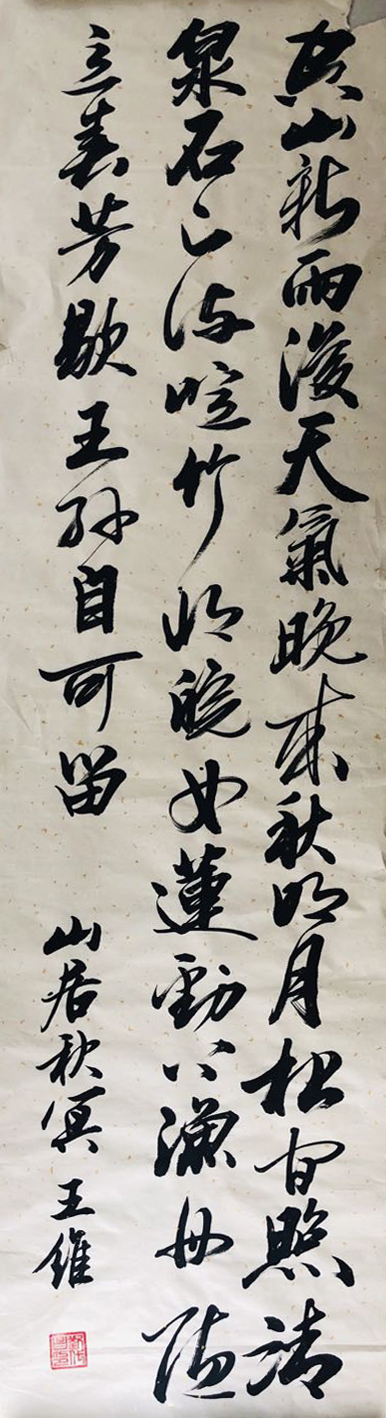 空山新雨後天氣晚来秋明月松间照清
泉石上流喧竹归浣女蓮動下漁舟随
意春芳歇王孫自可留 山居秋冥 王維